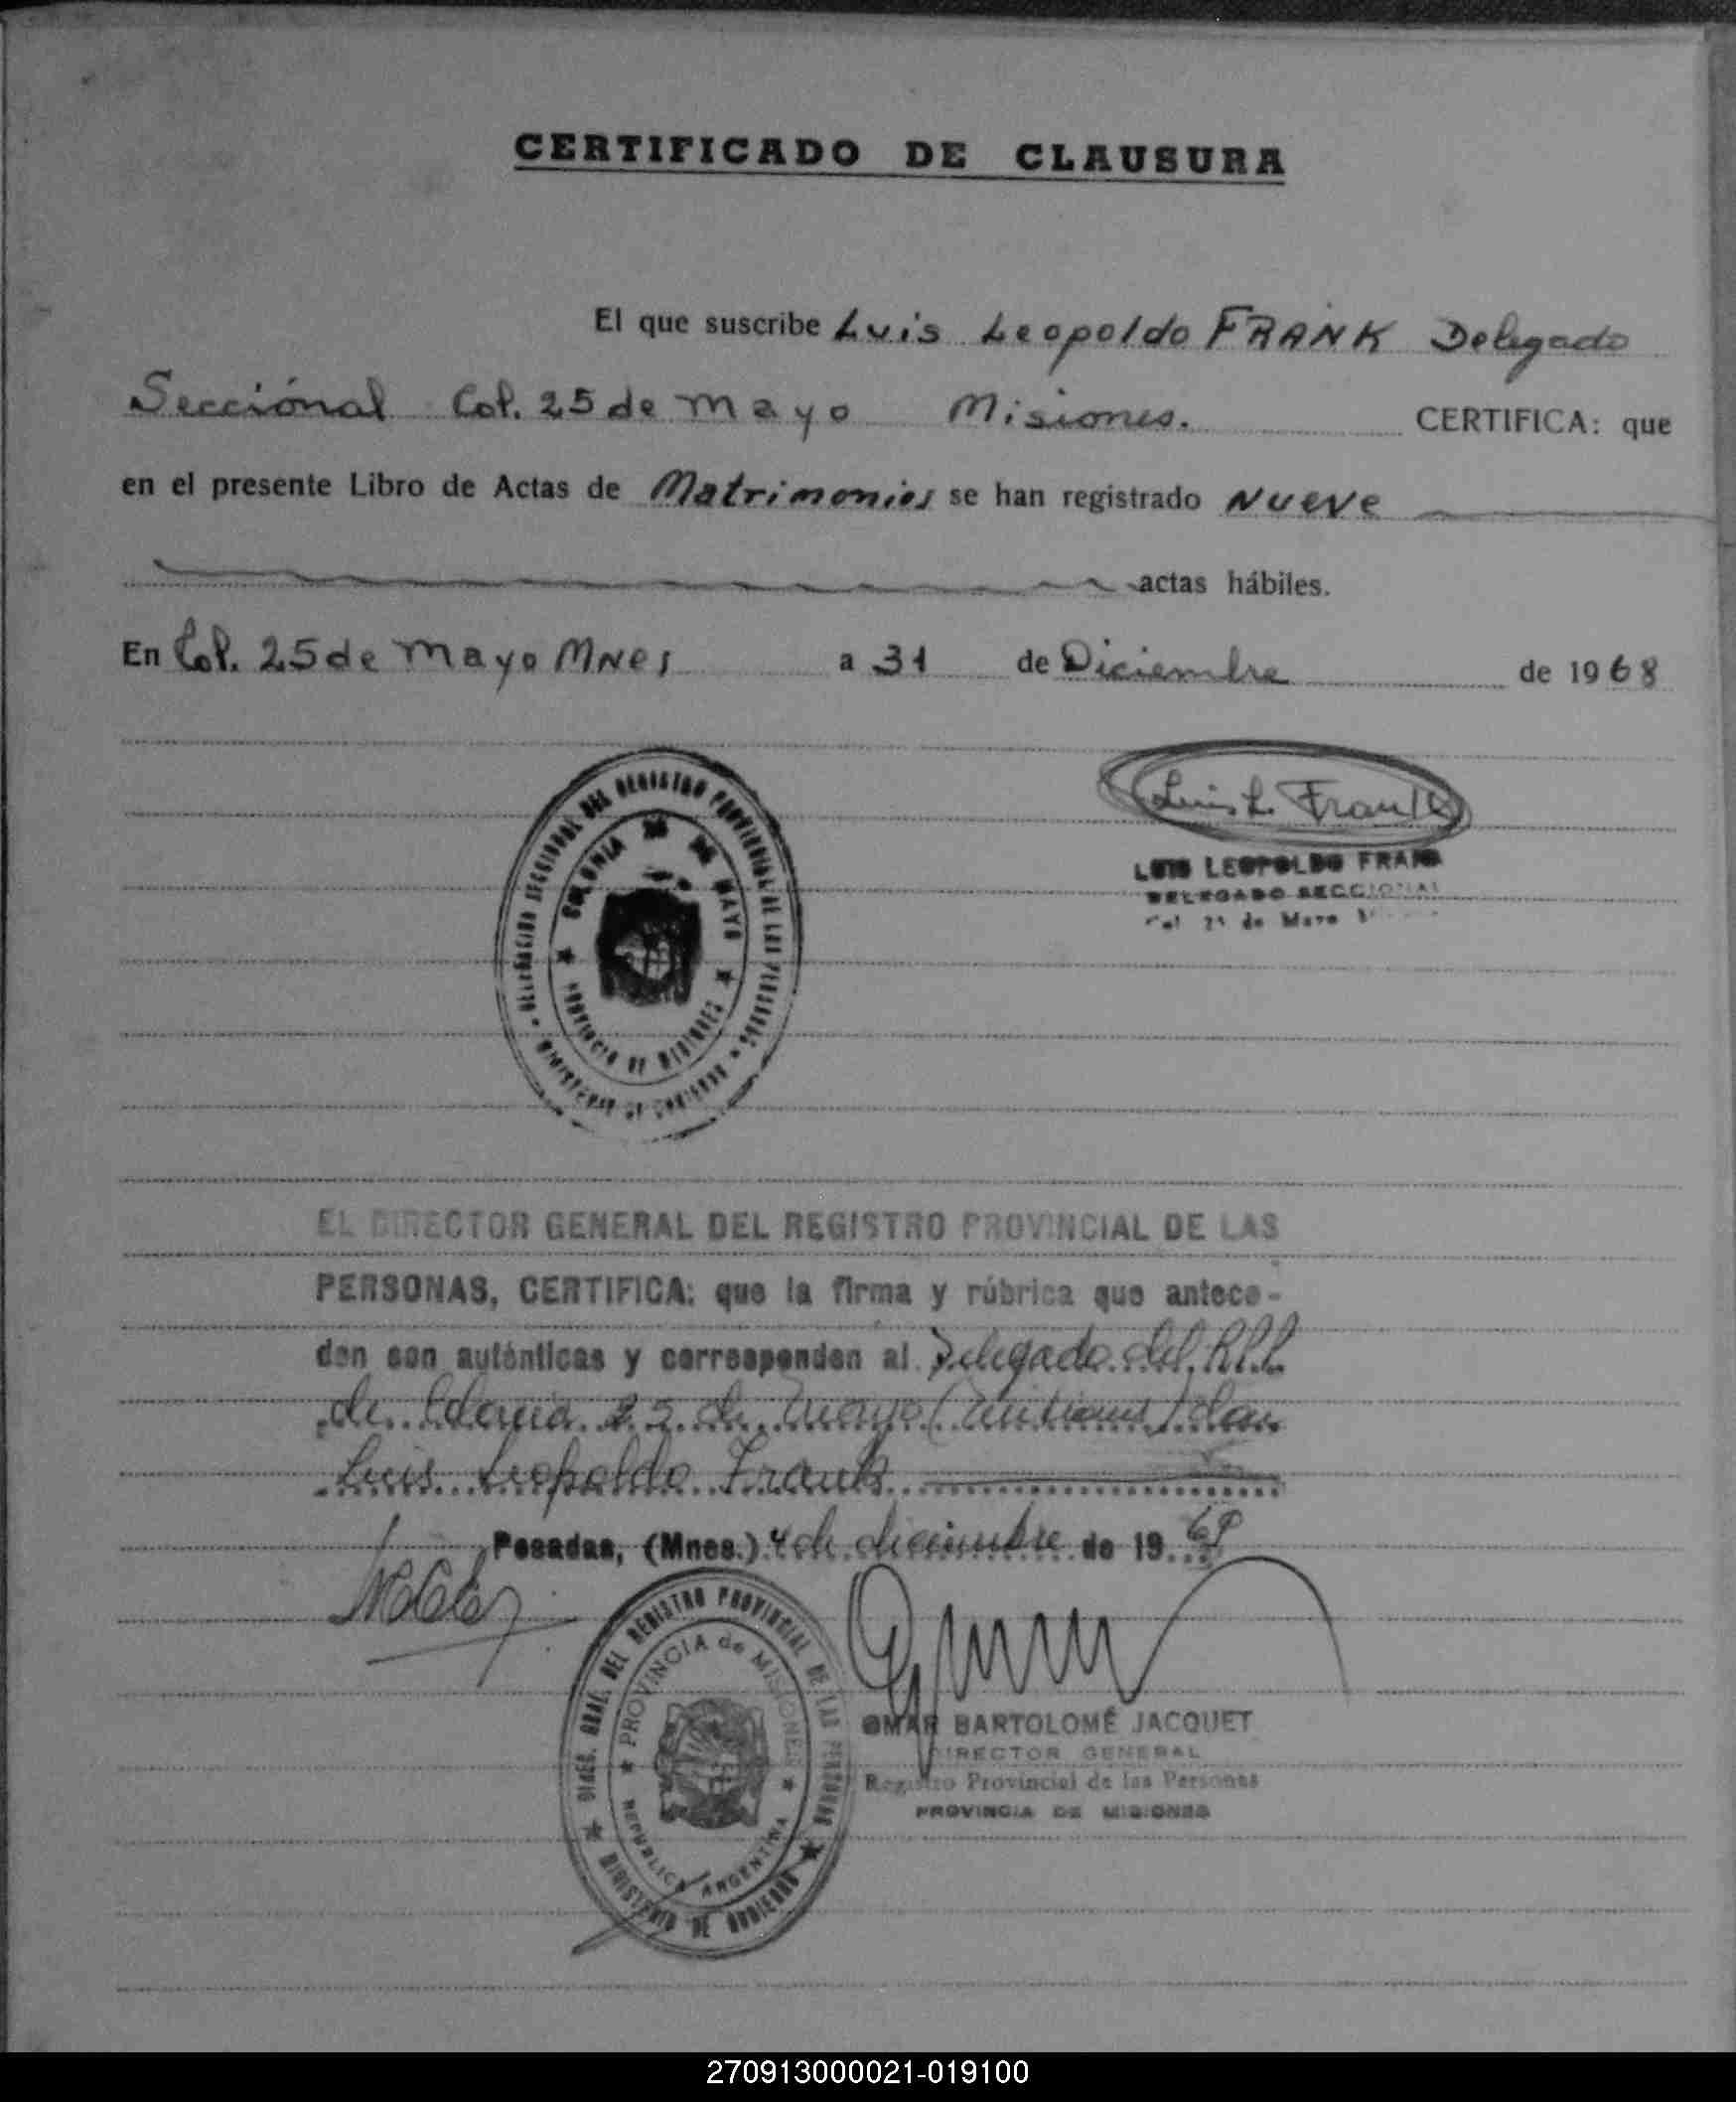 CERTIFICADO DE CLAUSURA
El que suscribe Luis Leopoldo FRANK Delegado
Seccional Col. 25 de Mayo Misiones. CERTIFICA: que
en el presente Libro de Actas de Matrimonios se han registrado Nueve
actas hábiles.
En Col. 25 de Mayo Mnes a 31 de Diciembre de 1968
DELEGACION SECCIONAL DEL REGISTRO PROVINCIAL DE LAS PERSONAS
MINISTERIO DE GOBIERNO
COLONIA 25 DE MAYO
PROVINCIA DE MISIONES
Luis L. Frank
LUIS LEOPOLDO FRANK
DELEGADO SECCIONAL
Col 25 de Mayo
EL DIRECTOR GENERAL DEL REGISTRO PROVINCIAL DE LAS
PERSONAS, CERTIFICA: que la firma y rúbrica que antece-
den son auténticas y corresponden al Delegado del R.P.P.
de Colonia 25 de Mayo (Misiones) don
Luis Leopoldo Frank
Posadas, (Mnes.) 4 de diciembre de 1969
DIREC. GRAL. DEL REGISTRO PROVINCIAL DE LAS PERSONAS
MINISTERIO DE GOBIERNO
PROVINCIA de MISIONES
REPUBLICA ARGENTINA
OMAR BARTOLOMÉ JACQUET
DIRECTOR GENERAL
Registro Provincial de las Personas
PROVINCIA DE MISIONES
270913000021-019100